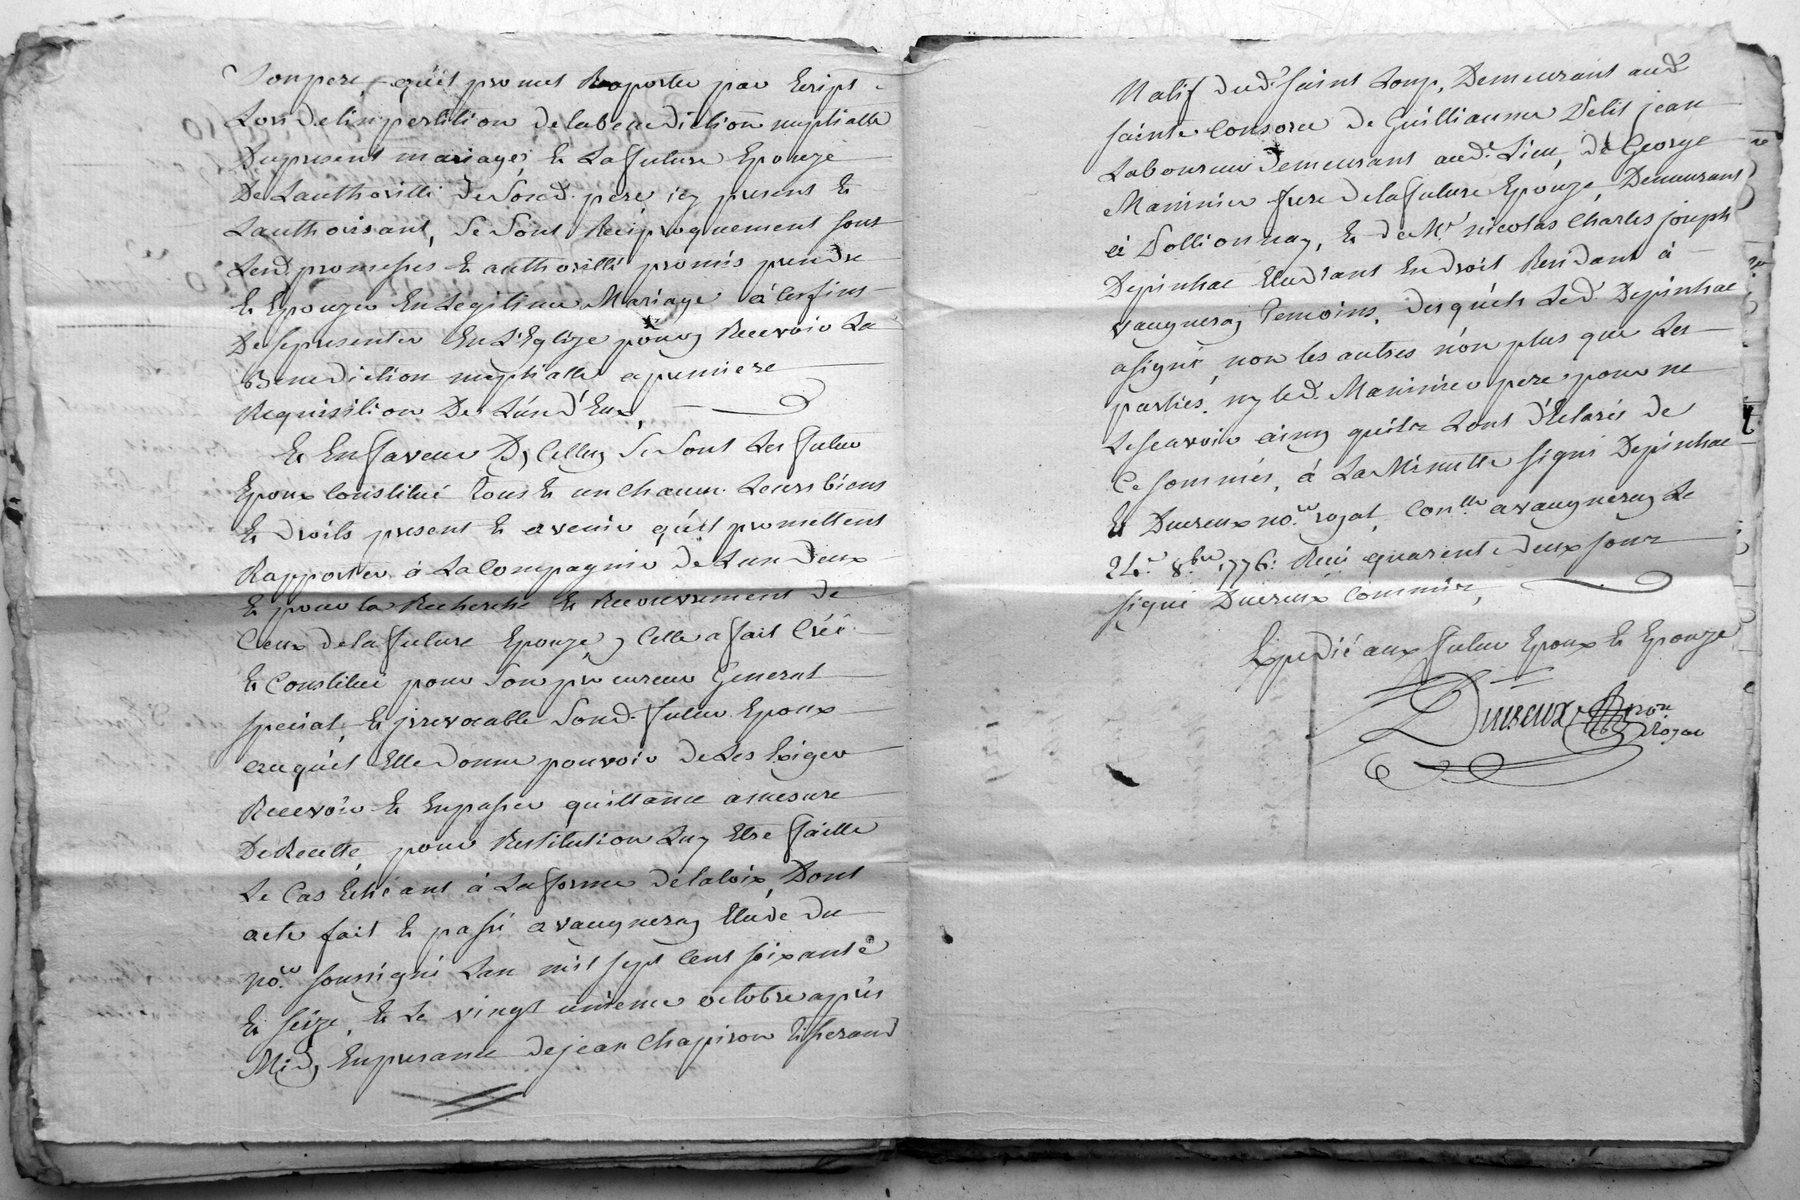 Son pere, qu'il promet Raporter par Ecript
Lors de linpertition de la benediction nuptialle
Du present mariage, Et La future Epouze
De Lauthoritté de Sond. pere icy present Et
Lauthorisant, Se Sont Reciproquement sous
Lesd. promesses Et authoritté promis prendre
Et Epouzer En Legitime Mariage à les fins
De se presenter En L'Eglize pour y Recevoir La
Benediction nuptialle a premiere
Requisition De L'un d'Eux
Et En faveur D'y Celluy Se Sont Les futur
Epoux Constitué tous Et un chacun Leurs biens
Et droits present Et avenir qu'il promettent
Rapporter à La Compagnie de L'un deux
Et pour la Recherche Et Recouvrement de
Ceux de la future Epouze, y Celle a fait Créé
Et Constitué pour Son procureur General
special, Et irrevocable Sond. futur Epoux
auquel Elle donne pouvoir de Les Exiger
Recevoir Et En passer quittance a mesure
De Recette, pour Restitution Luy Etre faitte
Le Cas Echéant à La forme de la loix, Dont
acte fait Et passé a vaugneray Etude du
no.re soussigné Lan mil sept Cent soixante
Et seize, Et Le vingt unieme octobre après
Midy En presance de jean Chapiron tisserand
Natif dud. saint Loup, Demeurant aud.
sainte Consorce de Guilliaume Petit jean
Laboureur demeurant aud. Lieu, de George
Maninier frere de la future Epouze, Demeurant
à Pollionnay, Et de Mr. nicolas Charles joseph
Depinhac Etudiant En droit Residant à
vaugneray temoins, desquels Led. Depinhac
a signé, non les autres non plus que Les
parties, ny led. Maninier pere pour ne
Le scavoir ainsy qu'ils Lont déclaré de
Ce sommés, à La Minutte signé Depinhac
Et Ducreux no.re royal, Con.llé a vaugneray Le
24.e 8.bre 1776. Reçu quarente deux sous
signé Ducreux Commis,
Expedié aux futur Epoux Et Epouze
Ducreux
Royal